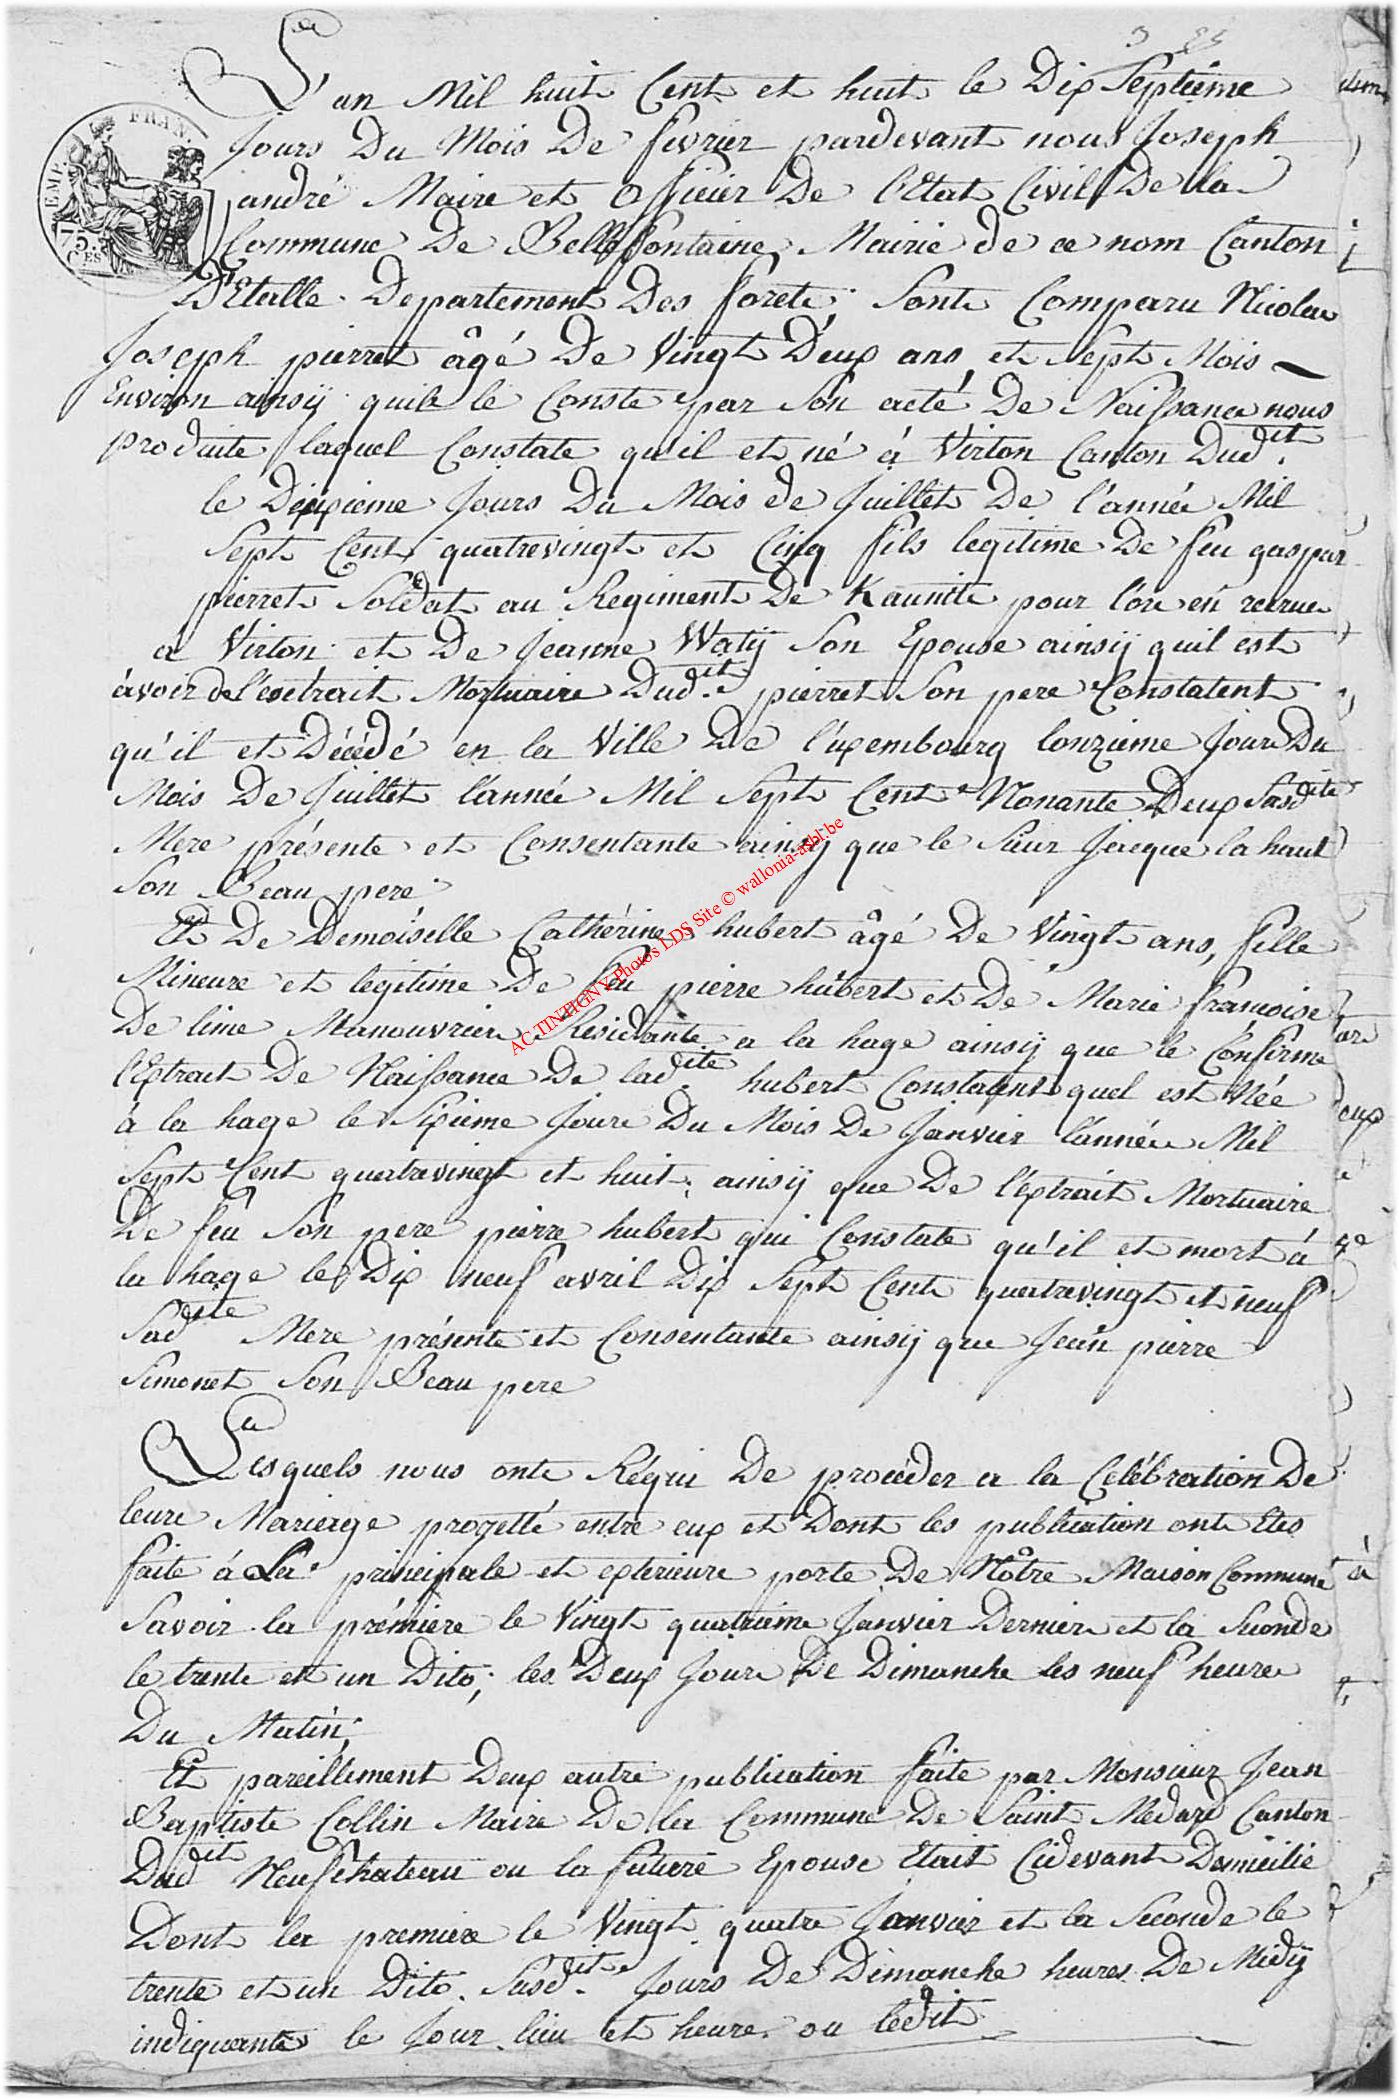 L'an Mil huit Cent et huit le Dix Septième
Jours Du Mois De fevrier pardevant nous Joseph
andré Maire et Officier De l'Etat Civil De la
Commune De Bellefontaine Mairie de ce nom Canton
D'Etalle Departement Des forets Sont Comparu Nicolas
Joseph pierret âgé De Vingt Deux ans et Sept Mois
Environ ainsÿ quil le Conste par Son acté De Naissance nous
produite laquel Constate qu'il et né à Virton Canton Dudit
le Deuxieme Jours Du Mois de Juillet De l'année Mil
Sept Cent quatrevingt et Cinq fils legitime De feu gaspar
pierret Soldat au Regiment De Kaunitz pour lors en recrue
a Virton et De Jeanne Watÿ Son Epouse ainsÿ quil est
àvoir de l'exetrait Mortuaire Dudit pierret Son pere Constatent
qu'il et Décédé en la Ville De l'uxembourg lonzieme Jour Du
Mois De Juillet l'année Mil Sept Cent Nonante Deux Sasdite
Mere présente et Consentante ainsÿ que le Sieur Jacque la haut
Son Beau pere
Et De Demoiselle Cathérine hubert âgé De Vingt ans, fille
Mineure et legitime De feu pierre hubert et De Marie françoise
De lime Manouvriere Residante a la hage ainsÿ que le Confirme
l'Extrait De Naissance De ladite hubert Constatent quel est Née
à la hage le Sixieme Jours Du Mois De Janvier l'année Mil
Sept Cent quatrevingt et huit, ainsÿ que De l'extrait Mortuaire
De feu Son pere pierre hubert qui Constate qu'il et mort à
la hage le Dix neuf avril Dix Sept Cent quatrevingt et neuf
Sadite Mere présente et Consentante ainsÿ que Jean pierre
Simonet Son Beau pere
Lesquels nous ont Réqui De procéder a la Celébration De
leure Mariage projetté entre eux et Dont les publication ont Etes
faite á La principale et exterieure porte De Nôtre Maison Commune
Savoir la prémiere le Vingt quatrieme Janvier Dernier et la Seconde
le trente et un Dito; les Deux Jours De Dimanche les neuf heures
Du Matin;
Et pareillement Deux autre publication faite par Monsieur Jean
Baptiste Collin Maire De la Commune De Saint Medard Canton
Dudit Neufchateau ou la future Epouse Etait Cidevant Domicilié
Dont la premiere le Vingt quatre Janvier et la Seconde le
trente et un Dito. Susdit Jours De Dimanche heures De Midÿ
indiquante le Jour lieu et heure ou ledit
EMP. FRAN.
75. CES
AC TINTIGNY Photos LDS Site © wallonia-asbl.be